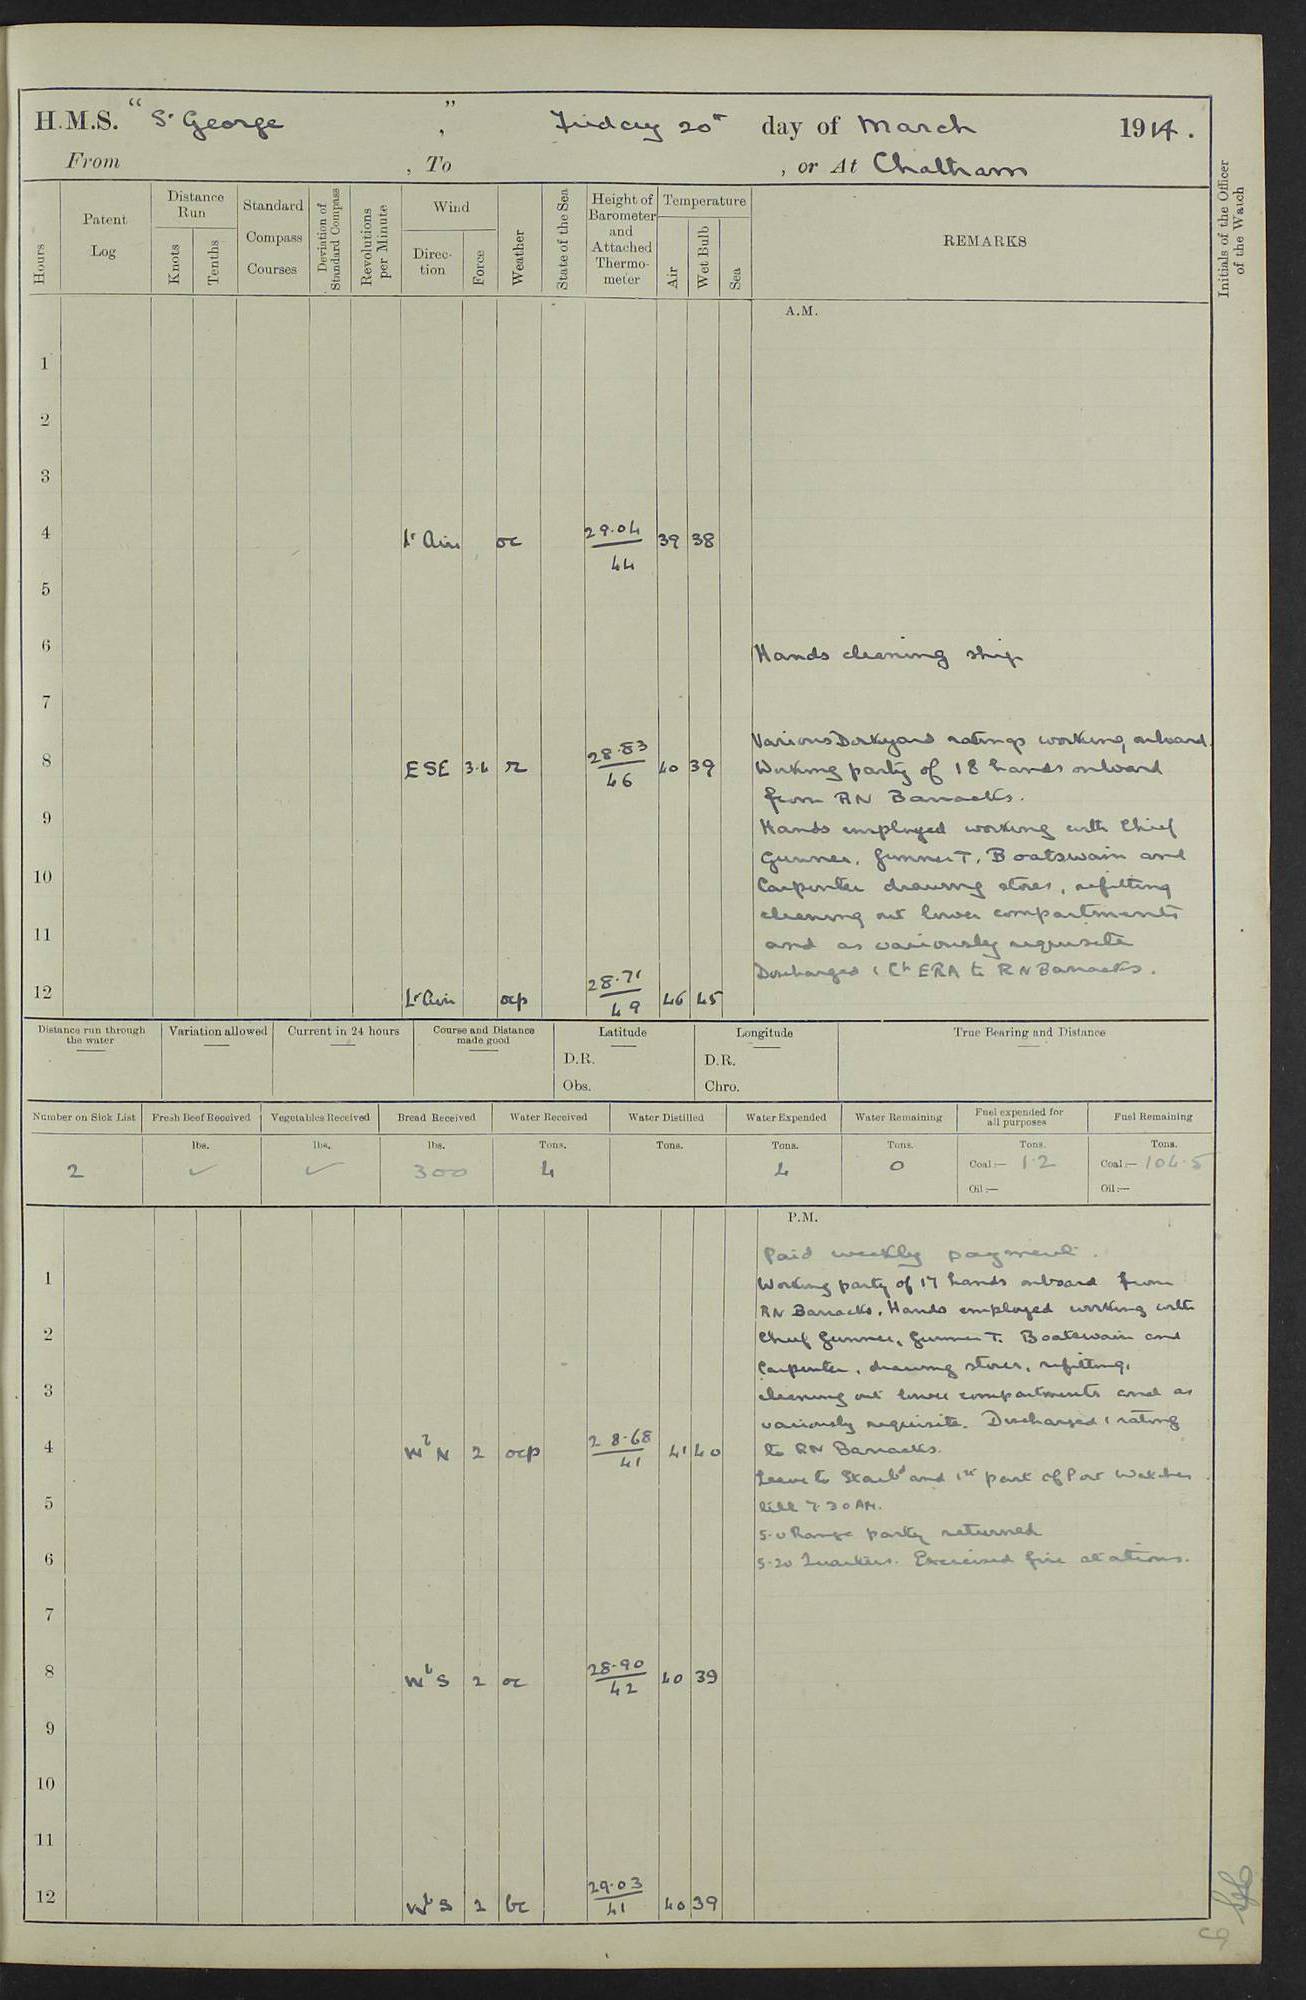 H.M.S. "St George", Friday 20th day of March 1914.
From , To , or At Chatham
Hours
Patent Log
Distance Run
Knots
Tenths
Standard Compass Courses
Deviation of Standard Compass
Revolutions per Minute
Wind
Direction
Force
Weather
State of the Sea
Height of Barometer and Attached Thermometer
Temperature
Air
Wet Bulb
Sea
REMARKS
Initials of the Officer of the Watch
A.M.
1
2
3
4 Lt Airs oc 29.04/44 39 38
5
6 Hands cleaning ship
7
Various Dockyard ratings working onboard.
8 ESE 3.4 r 28.83/46 40 39 Working party of 18 hands onboard
from RN Barracks.
9 Hands employed working with Chief
Gunner, Gunner T, Boatswain and
10 Carpenter drawing stores, refitting
cleaning out lower compartments
11 and as variously requisite
Discharged 1 Ch ERA to RN Barracks.
12 Lt Airs ocp 28.71/49 46 45
Distance run through the water
Variation allowed
Current in 24 hours
Course and Distance made good
Latitude
D.R.
Obs.
Longitude
D.R.
Chro.
True Bearing and Distance
Number on Sick List
Fresh Beef Received
Vegetables Received
Bread Received
Water Received
Water Distilled
Water Expended
Water Remaining
Fuel expended for all purposes
Fuel Remaining
lbs. lbs. lbs. Tons. Tons. Tons. Tons. Tons. Tons.
2 ✓ ✓ 300 4 4 0 Coal:— 1.2 Coal:— 104.5
Oil:— Oil:—
P.M.
Paid weekly payment.
1 Working party of 17 hands onboard from
RN Barracks. Hands employed working with
2 Chief Gunner, Gunner T. Boatswain and
Carpenter, drawing stores, refitting,
3 cleaning out lower compartments and as
variously requisite. Discharged 1 rating
4 WbN 2 ocp 28.68/41 41 40 to RN Barracks.
Leave to Starbd and 1st part of Port Watches
5 till 7.30 AM.
5.0 Range party returned
6 5.20 Quarters. Exercised fire stations.
7
8 WbS 2 oc 28.90/42 40 39
9
10
11
12 WbS 2 bc 29.03/41 40 39